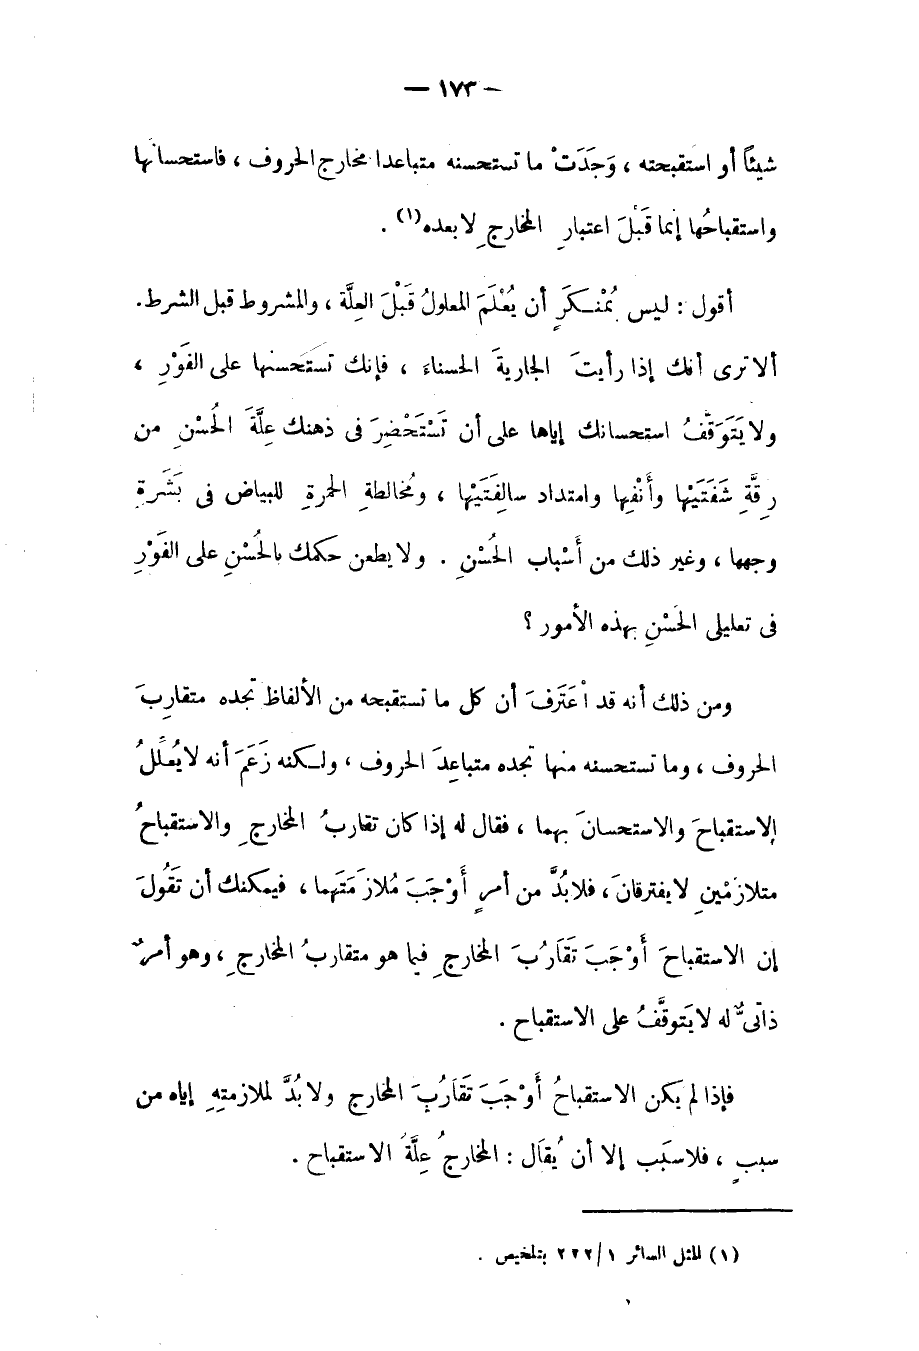 — ١٧٣ —
شيئًا أو استقبحته ، وَجَدَتْ ما تستحسنه متباعدا مخارج الحروف ، فاستحسانُها
واستقباحُها إنما قَبْلَ اعتبارِ المخارجِ لا بعده (١) .
أقول : ليس بُمنْكَرٍ أن يُعْلَمَ المعلولُ قَبْلَ العِلَّة ، والمشروط قبل الشرط .
ألا ترى أنك إذا رأيتَ الجاريةَ الحسناءَ ، فإنك تستَحسنها على الفَوْرِ ،
ولا يَتَوَقَّفُ استحسانك إياها على أن تَسْتَحْضِرَ فى ذهنك عِلَّةَ الحُسْنِ من
رِقَّةِ شَفَتَيْها وأَنْفِها وامتداد سالِفَتَيْها ، ومُخالطةِ الحمرةِ للبياض فى بَشَرةِ
وجهها ، وغير ذلك من أَسْباب الحُسْنِ . ولا يطعن حكمك بالحُسْنِ على الفَوْرِ
فى تعليلى الحَسْنِ بهذه الأمور ؟
ومن ذلك أنه قد اْعَتَرفَ أن كل ما تستقبحه من الألفاظ تجده متقارِبَ
الحروف ، وما تستحسنه منها تجده متباعِدَ الحروف ، ولكنه زَعَمَ أنه لا يُعلِّلُ
الاستقباحَ والاستحسانَ بهما ، فقال له إذا كان تقاربُ المخارجِ والاستقباحُ
متلازمْينِ لا يفترقانَ ، فلا بُدَّ من أمرٍ أَوْجَبَ مُلازَمَتَهما ، فيمكنك أن تَقُولَ
إن الاستقباحَ أَوْجَبَ تَقَارُبَ المخارجِ فيما هو متقاربُ المخارجِ ، وهو أمرٌ
ذاتىٌّ له لا يَتوقَّفُ على الاستقباح .
فإذا لم يكن الاستقباحُ أَوْجَبَ تَقَارُبَ المخارج ولا بُدَّ لملازمتِهِ إياه من
سببٍ ، فلا سَبَب إلا أن يُقَال : المخارجُ عِلَّةُ الاستقباح .
(١) المثل السائر ١/٢٢٢ بتلخيص .